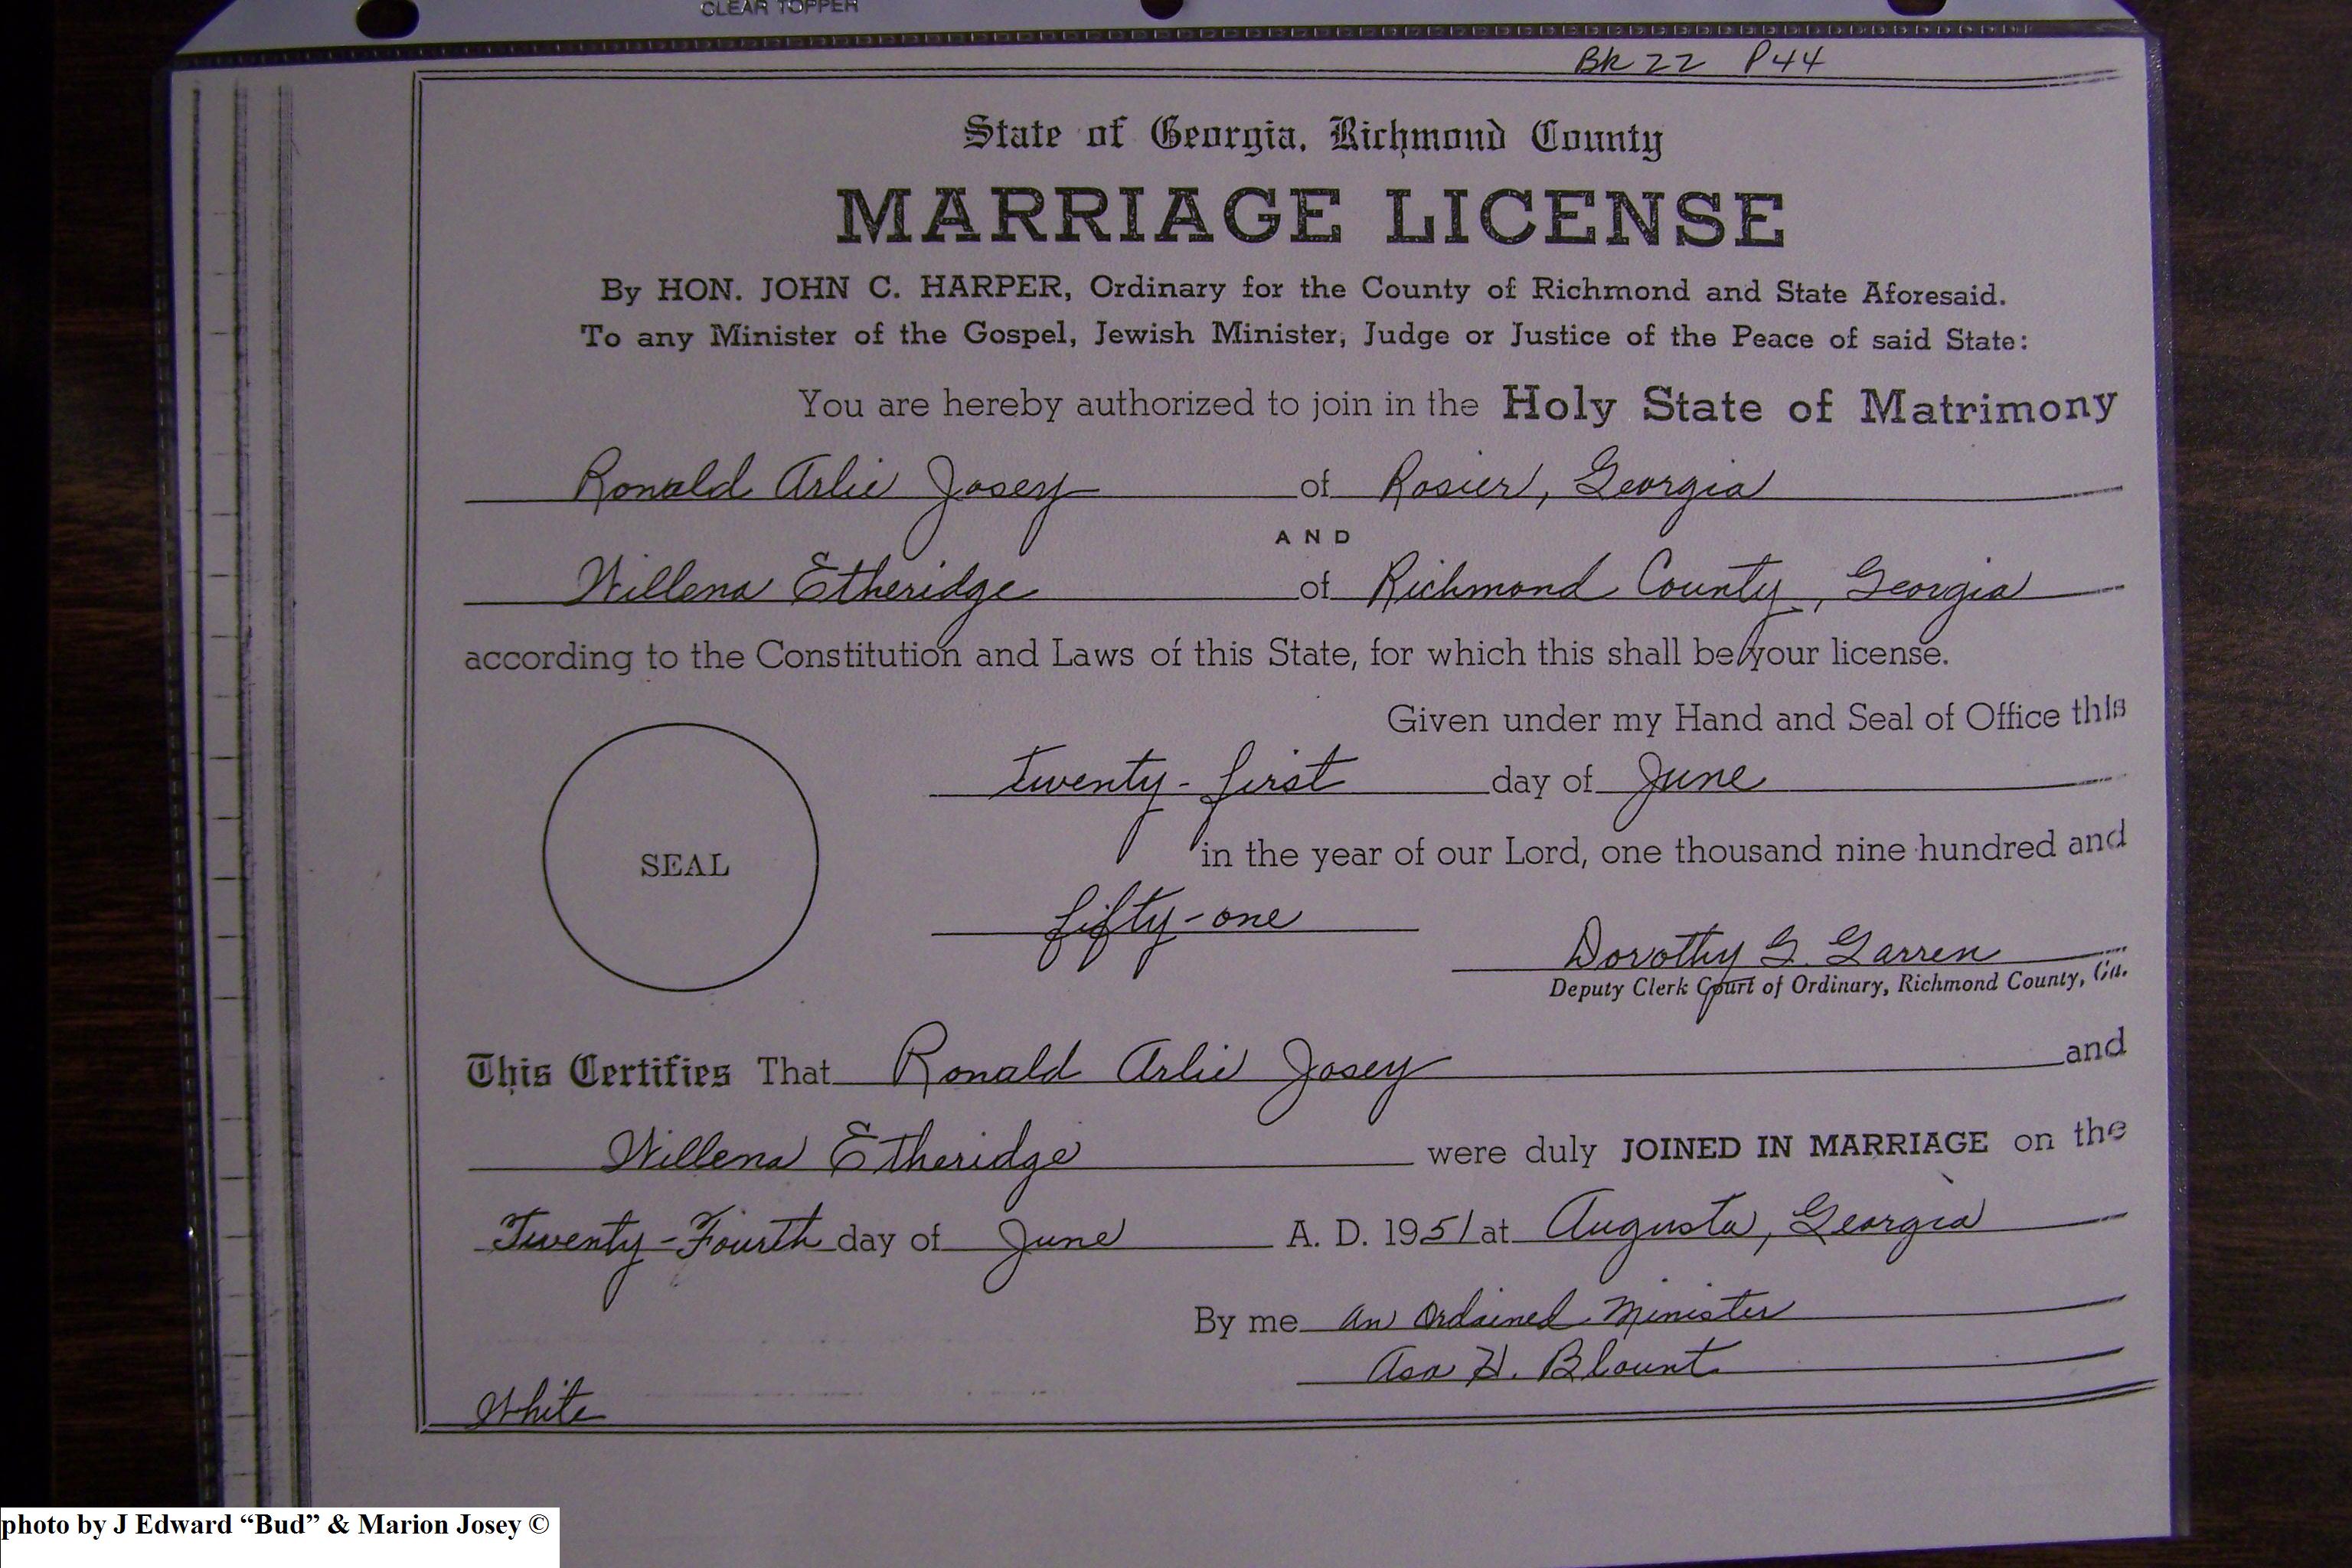 CLEAR TOPPER
Bk 22 P44
State of Georgia, Richmond County
MARRIAGE LICENSE
By HON. JOHN C. HARPER, Ordinary for the County of Richmond and State Aforesaid.
To any Minister of the Gospel, Jewish Minister, Judge or Justice of the Peace of said State:
You are hereby authorized to join in the Holy State of Matrimony
Ronald Arlie Josey of Rosier, Georgia
AND
Willena Etheridge of Richmond County, Georgia
according to the Constitution and Laws of this State, for which this shall be your license.
Given under my Hand and Seal of Office this
twenty-first day of June
in the year of our Lord, one thousand nine hundred and
SEAL
fifty-one
Dorothy G. Garren
Deputy Clerk Court of Ordinary, Richmond County, Ga.
This Certifies That Ronald Arlie Josey and
Willena Etheridge were duly JOINED IN MARRIAGE on the
Twenty-Fourth day of June A. D. 1951 at Augusta, Georgia
By me an Ordained Minister
Asa H. Blount
White
photo by J Edward “Bud” & Marion Josey ©